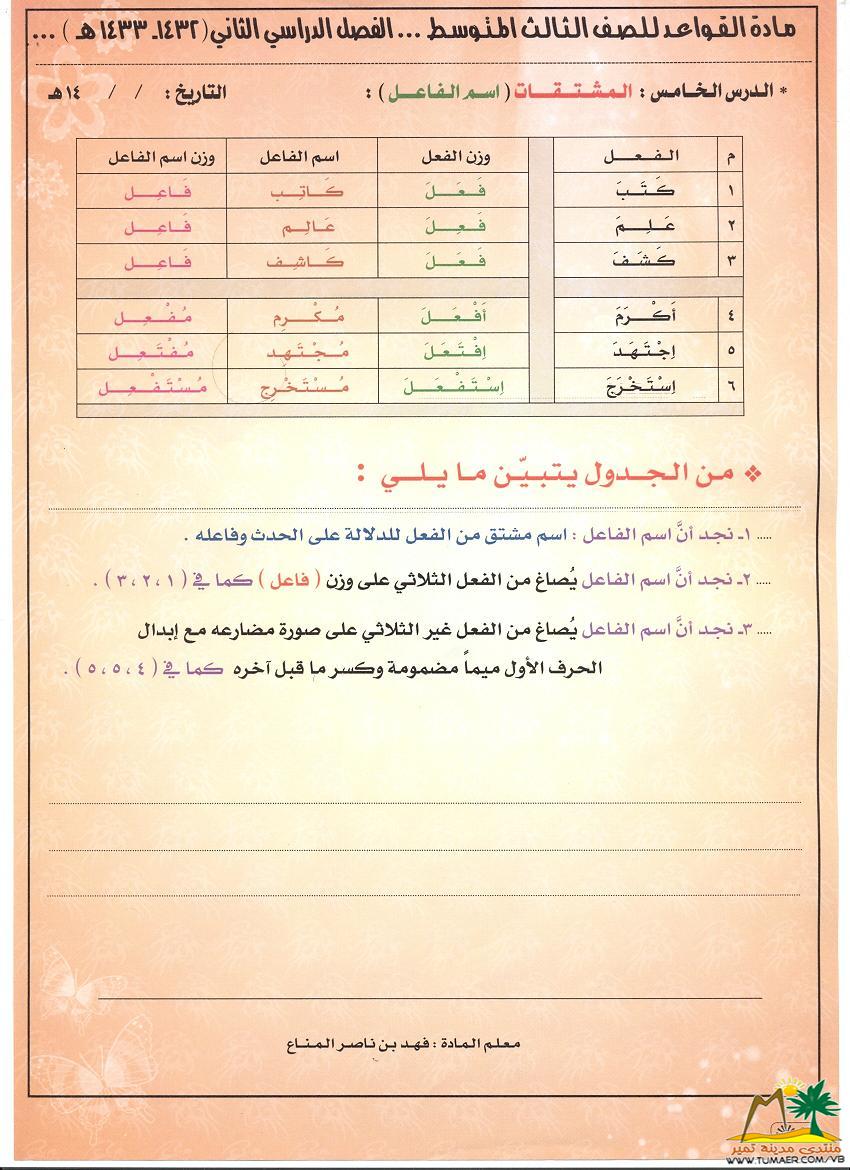 مادة القواعد للصف الثالث المتوسط ... الفصل الدراسي الثاني (١٤٣٢ـ ١٤٣٣ هـ ) ...
* الدرس الخامس : المشتـقـات ( اسم الفاعـل ) : التاريخ : / / ١٤هـ
م الـفـعـل وزن الفعل اسم الفاعل وزن اسم الفاعل
١ كَتَبَ فَعَلَ كَاتِب فَاعِل
٢ عَلِمَ فَعِلَ عَالِم فَاعِل
٣ كَشَفَ فَعَلَ كَاشِف فَاعِل
٤ أَكْرَمَ أَفْعَلَ مُكْرِم مُفْعِل
٥ اِجْتَهَدَ اِفْتَعَلَ مُجْتَهِد مُفْتَعِل
٦ اِسْتَخْرَجَ اِسْتَفْعَلَ مُسْتَخْرِج مُسْتَفْعِل
❖ من الجدول يتبيّن ما يلي :
..... ١ـ نجد أنَّ اسم الفاعل : اسم مشتق من الفعل للدلالة على الحدث وفاعله .
..... ٢ـ نجد أنَّ اسم الفاعل يُصاغ من الفعل الثلاثي على وزن ( فاعل ) كما في ( ١ ، ٢ ، ٣ ) .
..... ٣ـ نجد أنَّ اسم الفاعل يُصاغ من الفعل غير الثلاثي على صورة مضارعه مع إبدال
الحرف الأول ميماً مضمومة وكسر ما قبل آخره كما في ( ٤ ، ٥ ، ٥ ) .
معلم المادة : فهد بن ناصر المناع
منتدى مدينة تمير
WWW.TUMAER.COM/VB